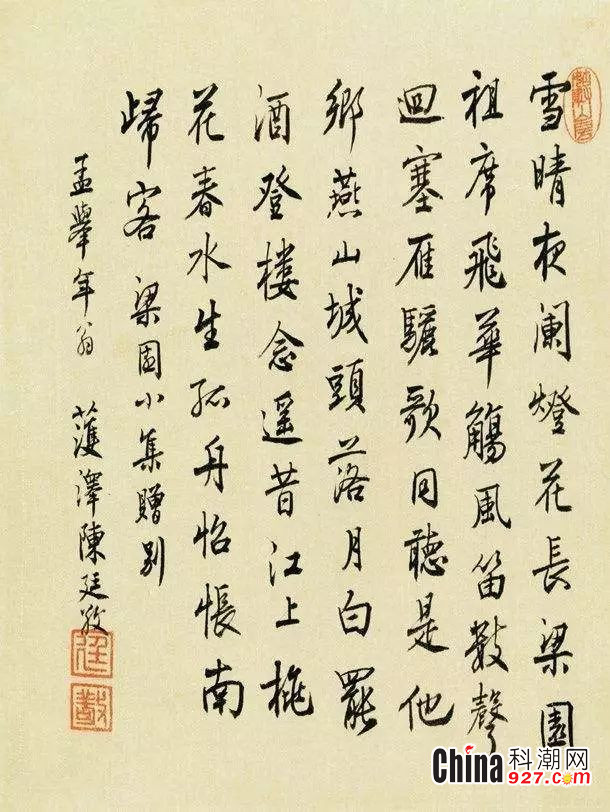 雪晴夜闌燈花長梁園
祖席飛華觴風笛數聲
迴塞雁驪歌同聽是他
鄉燕山城頭落月白罷
酒登樓念遥昔江上桃
花春水生孤舟怊悵南
歸客 梁園小集贈別
孟舉年翁 蒦澤陳廷敬
廷敬
China科潮网
927.com